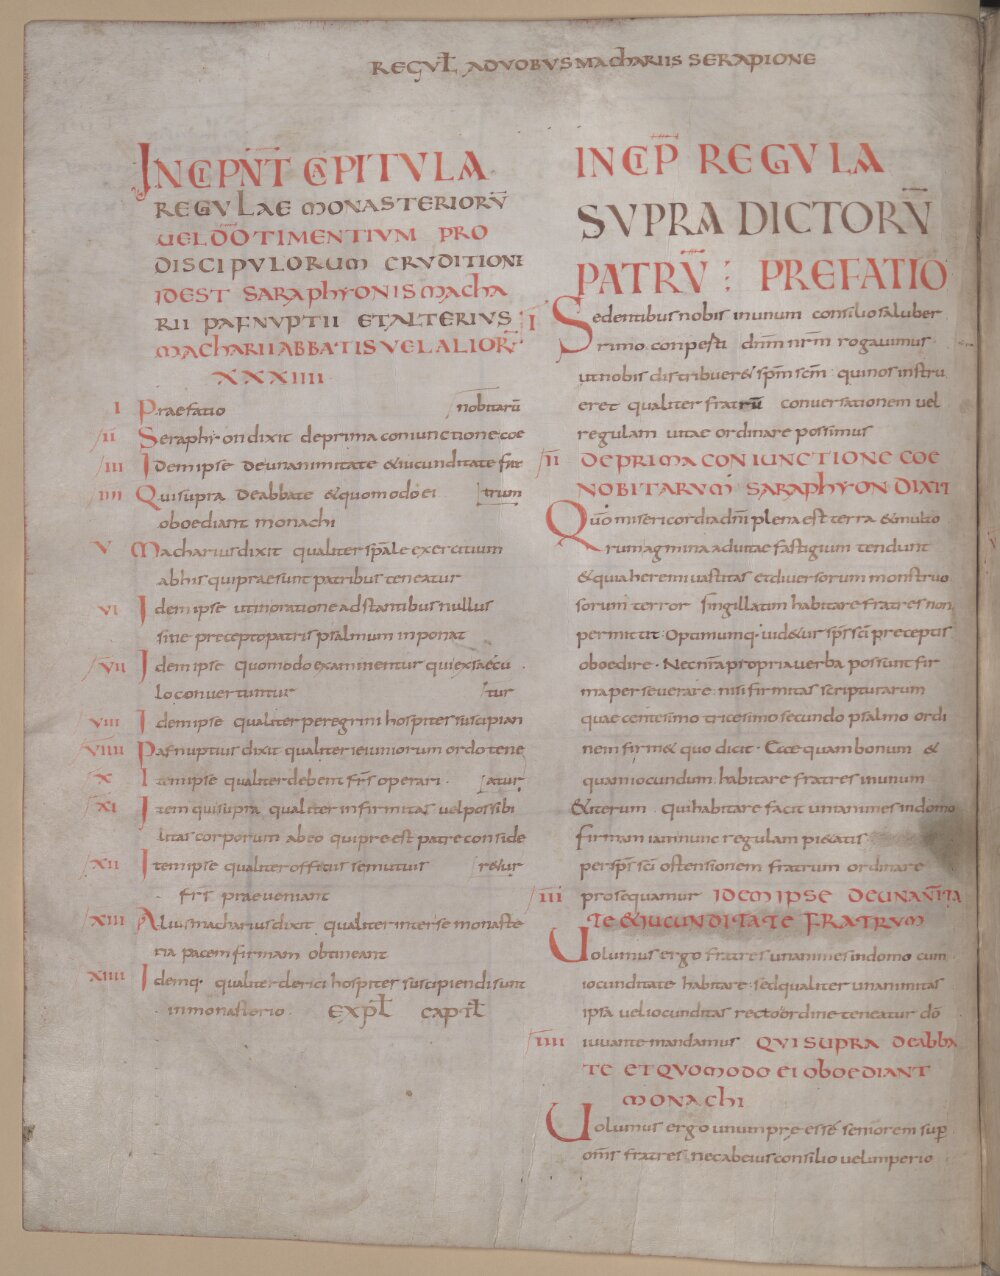 REGUL̄ ADVOBVS MAChARIIS SERAPIONE
INCIPNT̄ CAPITVLA
REGULAE MONASTERIORV̄
UEL D̄O TIMENTIVM PRO
DISCIPVLORUM ERVDITIONE
IDEST SARAPHYONIS MACHA
RII PAFNVPTII ET ALTERIVS
MACHARII ABBATIS VEL ALIOR̄
XXXIIII
I Praefatio nobitarū
II Seraphyon dixit de prima coniunctione coe
III Idem ipse de unanimitate & iucunditate fra
IIII Qui supra de abbate & quomodo ei trum
oboediant monachi
V Macharius dixit qualiter sp̄ale exercitium
ab his qui praesunt patribus teneatur
VI Idem ipse ut in oratione adstantibus nullus
sine precepto patris psalmum inponat
VII Idem ipse quomodo examinentur qui ex saecu
lo convertuntur tur
VIII Idem ipse qualiter peregrini hospites suscipian
VIIII Pafnuptius dixit qualiter ieiuniorum ordo tene
X Item ipse qualiter debent fr̄s operari. atur
XI Item qui supra qualiter infirmitas vel possibi
litas corporum ab eo qui preest patre conside
XII Item ipse qualiter officiis se mutuis r&ur
fr̄s praeveniant
XIII Alius macharius dixit qualiter inter se monaste
ria pacem firmam obtineant
XIIII Idemq. qualiter clerici hospites suscipiendi sunt
in monasterio. EXPL̄ CAPIL̄
INCIP̄ REGULA
SVPRA DICTORV̄
PATRV̄ : PREFATIO
I Sedentibus nobis in unum consilio saluber
rimo conpesti dn̄m nr̄m rogavimus
ut nobis distribuer& sp̄m sc̄m qui nos instru
eret qualiter fratrū conversationem vel
regulam vitae ordinare possimus
II DE PRIMA CONIUNCTIONE COE
NOBITARVM SARAPHYON DIXIT
Qūo misericordia dn̄i plena est terra & multo
rum agmina ad vitae fastigium tendunt
& quia heremi vastitas et diversorum monstruo
sorum terror singillatim habitare fratres non
permittit. Optimumq. vid&ur sp̄s sc̄i preceptis
oboedire. Nec nr̄a propria verba possunt fir
ma perseverare nisi firmitas scripturarum
quae centesimo tricesimo secundo psalmo ordi
nem firm& quo dicit. Ecce quam bonum &
quam iocundum habitare fratres in unum
& iterum qui habitare facit unanimes in domo
firmam iam nunc regulam pi&atis
per sp̄s sc̄i ostensionem fratrum ordinare
III prosequamur IDEM IPSE DE UNANIMITA
TE & IUCUNDITATE FRATRVM
Uolumus ergo fratres unanimes in domo cum
iocunditate habitare sed qualiter unanimitas
ipsa vel iocunditas recto ordine teneatur dō
IIII iuvante mandamus QUI SUPRA DE ABBA
TE ET QVOMODO EI OBOEDIANT
MONAChI
Uolumus ergo unum pre esse seniorem sup̄
om̄s fratres nec ab eius consilio vel imperio